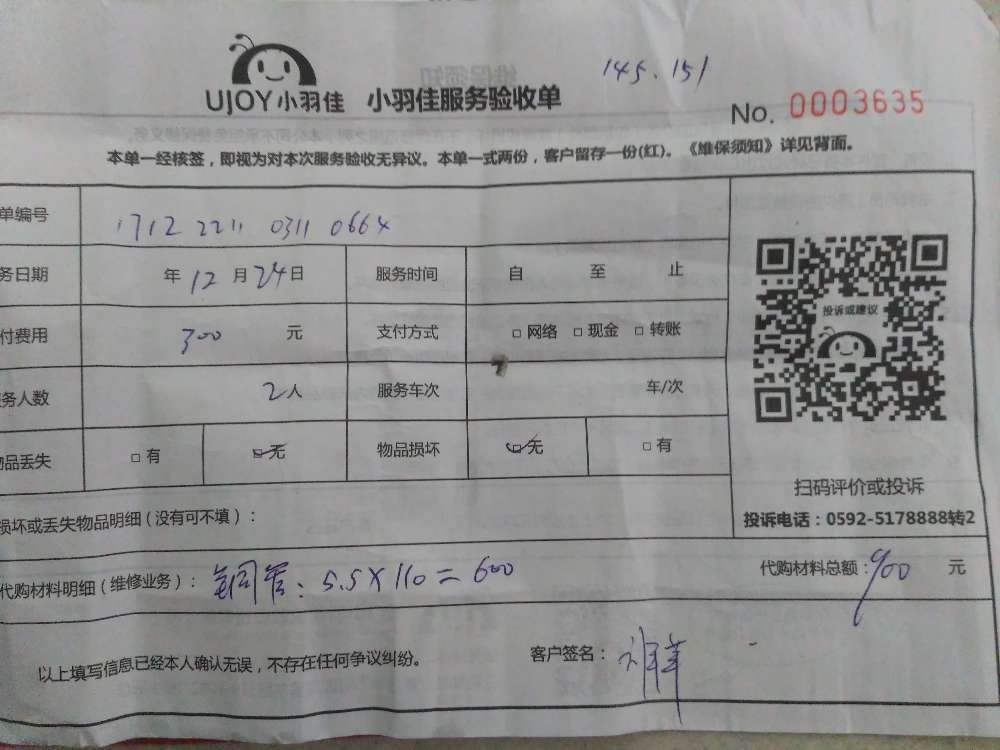 145.151
UJOY小羽佳 小羽佳服务验收单
No. 0003635
本单一经核签，即视为对本次服务验收无异议。本单一式两份，客户留存一份(红)。《维保须知》详见背面。
单编号 1712 2211 0311 0664
务日期 年 12 月 24 日 服务时间 自 至 止
付费用 300 元 支付方式 □ 网络 □ 现金 □ 转账
务人数 2 人 服务车次 车/次
物品丢失 □ 有 □ 无 物品损坏 □ 无 □ 有
投诉或建议
扫码评价或投诉
投诉电话：0592-5178888转2
损坏或丢失物品明细（没有可不填）：
代购材料明细（维修业务）：铜管：5.5×110=600 代购材料总额：900 元
以上填写信息已经本人确认无误，不存在任何争议纠纷。 客户签名：